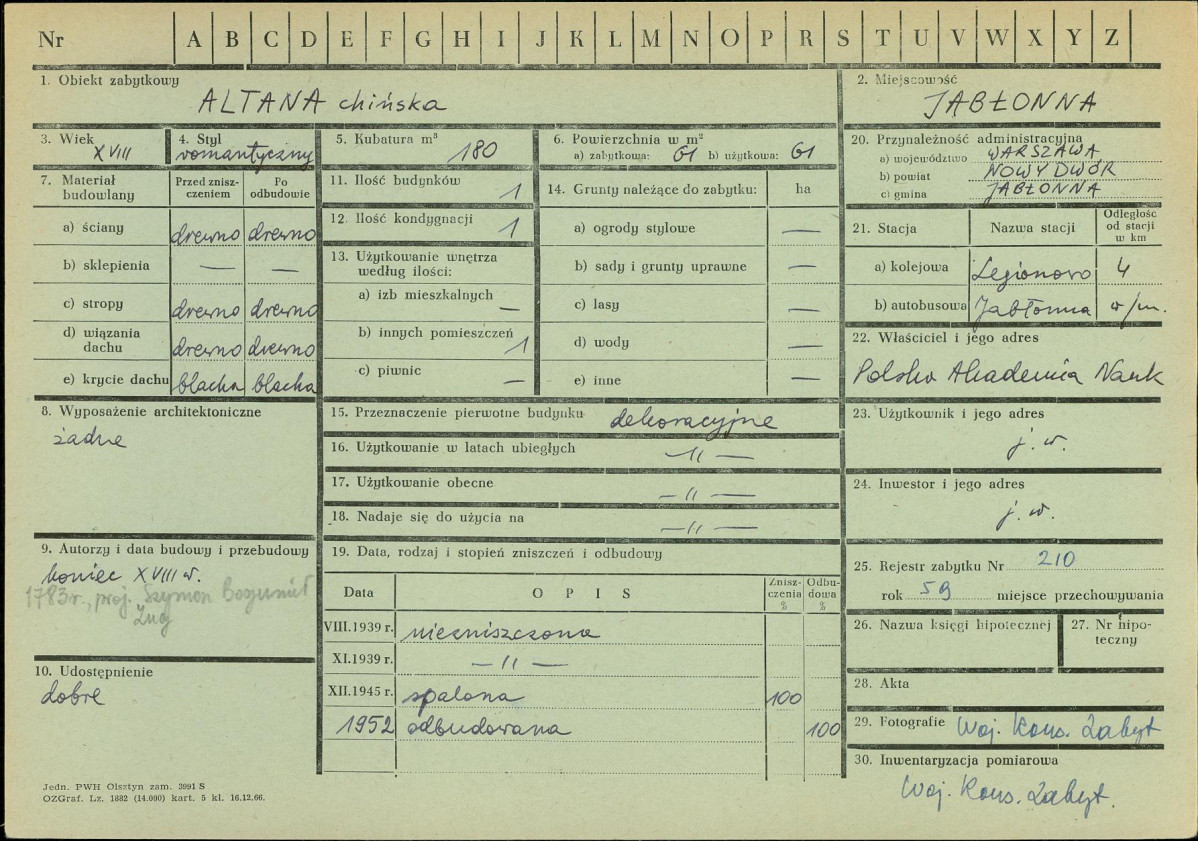 Nr A B C D E F G H I J K L M N O P R S T U V W X Y Z
1. Obiekt zabytkowy
ALTANA chińska
2. Miejscowość
JABŁONNA
3. Wiek
XVIII
4. Styl
romantyczny
5. Kubatura m³
180
6. Powierzchnia w m²
a) zabytkowa: 61 b) użytkowa: 61
20. Przynależność administracyjna
a) województwo WARSZAWA
b) powiat NOWY DWÓR
c) gmina JABŁONNA
7. Materiał budowlany
Przed zniszczeniem
Po odbudowie
a) ściany drewno drewno
b) sklepienia — —
c) stropy drewno drewno
d) wiązania dachu drewno drewno
e) krycie dachu blacha blacha
11. Ilość budynków 1
12. Ilość kondygnacji 1
13. Użytkowanie wnętrza
według ilości:
a) izb mieszkalnych —
b) innych pomieszczeń 1
c) piwnic —
14. Grunty należące do zabytku: ha
a) ogrody stylowe —
b) sady i grunty uprawne —
c) lasy —
d) wody —
e) inne —
21. Stacja Nazwa stacji Odległość od stacji w km
a) kolejowa Legionowo 4
b) autobusowa Jabłonna w/m.
22. Właściciel i jego adres
Polska Akademia Nauk
8. Wyposażenie architektoniczne
żadne
15. Przeznaczenie pierwotne budynku dekoracyjne
16. Użytkowanie w latach ubiegłych —"—
17. Użytkowanie obecne —"—
18. Nadaje się do użycia na —"—
23. Użytkownik i jego adres
j. w.
24. Inwestor i jego adres
j. w.
9. Autorzy i data budowy i przebudowy
koniec XVIII w.
1783 r., proj. Szymon Bogumił
Zug
19. Data, rodzaj i stopień zniszczeń i odbudowy
Data O P I S Zniszczenia % Odbudowa %
VIII.1939 r. niezniszczona
XI.1939 r. —"—
XII.1945 r. spalona 100
1952 odbudowana 100
25. Rejestr zabytku Nr 210
rok 59 miejsce przechowywania
26. Nazwa księgi hipotecznej
27. Nr hipoteczny
10. Udostępnienie
dobre
28. Akta
29. Fotografie Woj. Kons. Zabyt
30. Inwentaryzacja pomiarowa
Woj. Kons. Zabyt.
Jedn. PWH Olsztyn zam. 3991 S
OZGraf. Lz. 1882 (14.090) kart. 5 kl. 16.12.66.